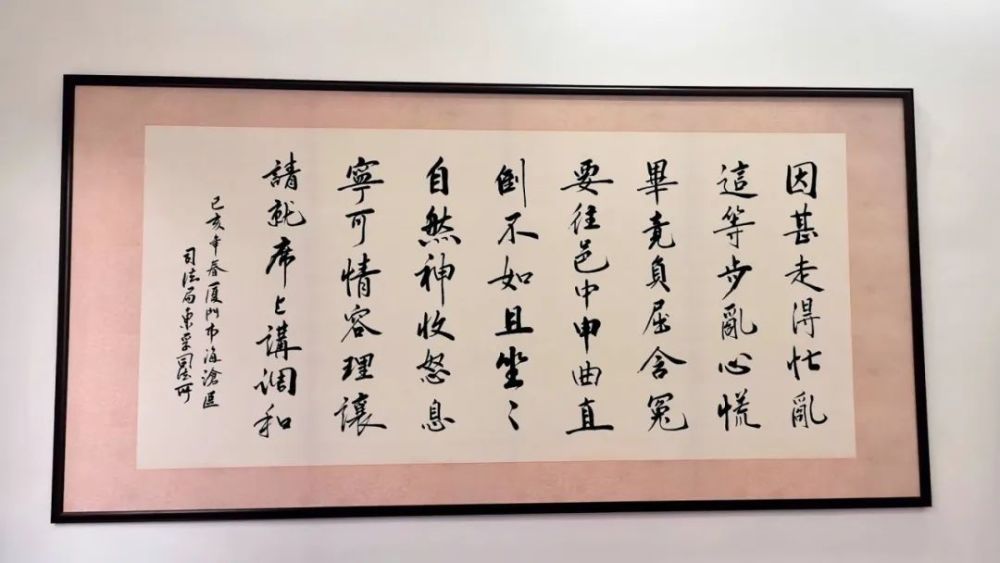 因甚走得忙亂
這等步亂心慌
畢竟負屈含冤
要往邑中申曲直
倒不如且坐〻
自然神收怒息
寧可情容理讓
請就席上講調和
己亥年春厦門市海滄區
司法局東孚司法所